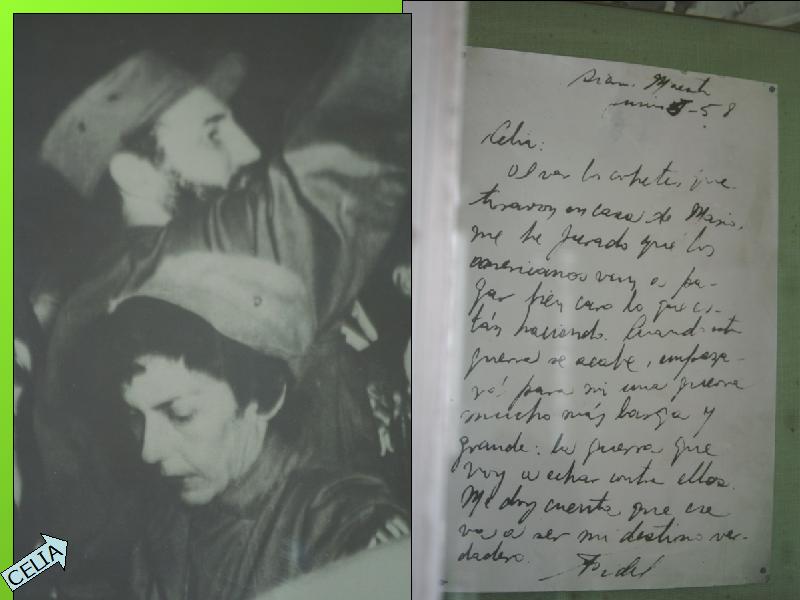 CELIA
Sierra Maestra
Junio 5-58
Celia:
Al ver los cohetes que
tiraron en casa de Mario,
me he jurado que los
americanos van a pa-
gar bien caro lo que es-
tán haciendo. Cuando esta
guerra se acabe, empeza-
rá para mi una guerra
mucho más larga y
grande: la guerra que
voy a echar contra ellos.
Me doy cuenta que ese
va a ser mi destino ver-
dadero.
Fidel